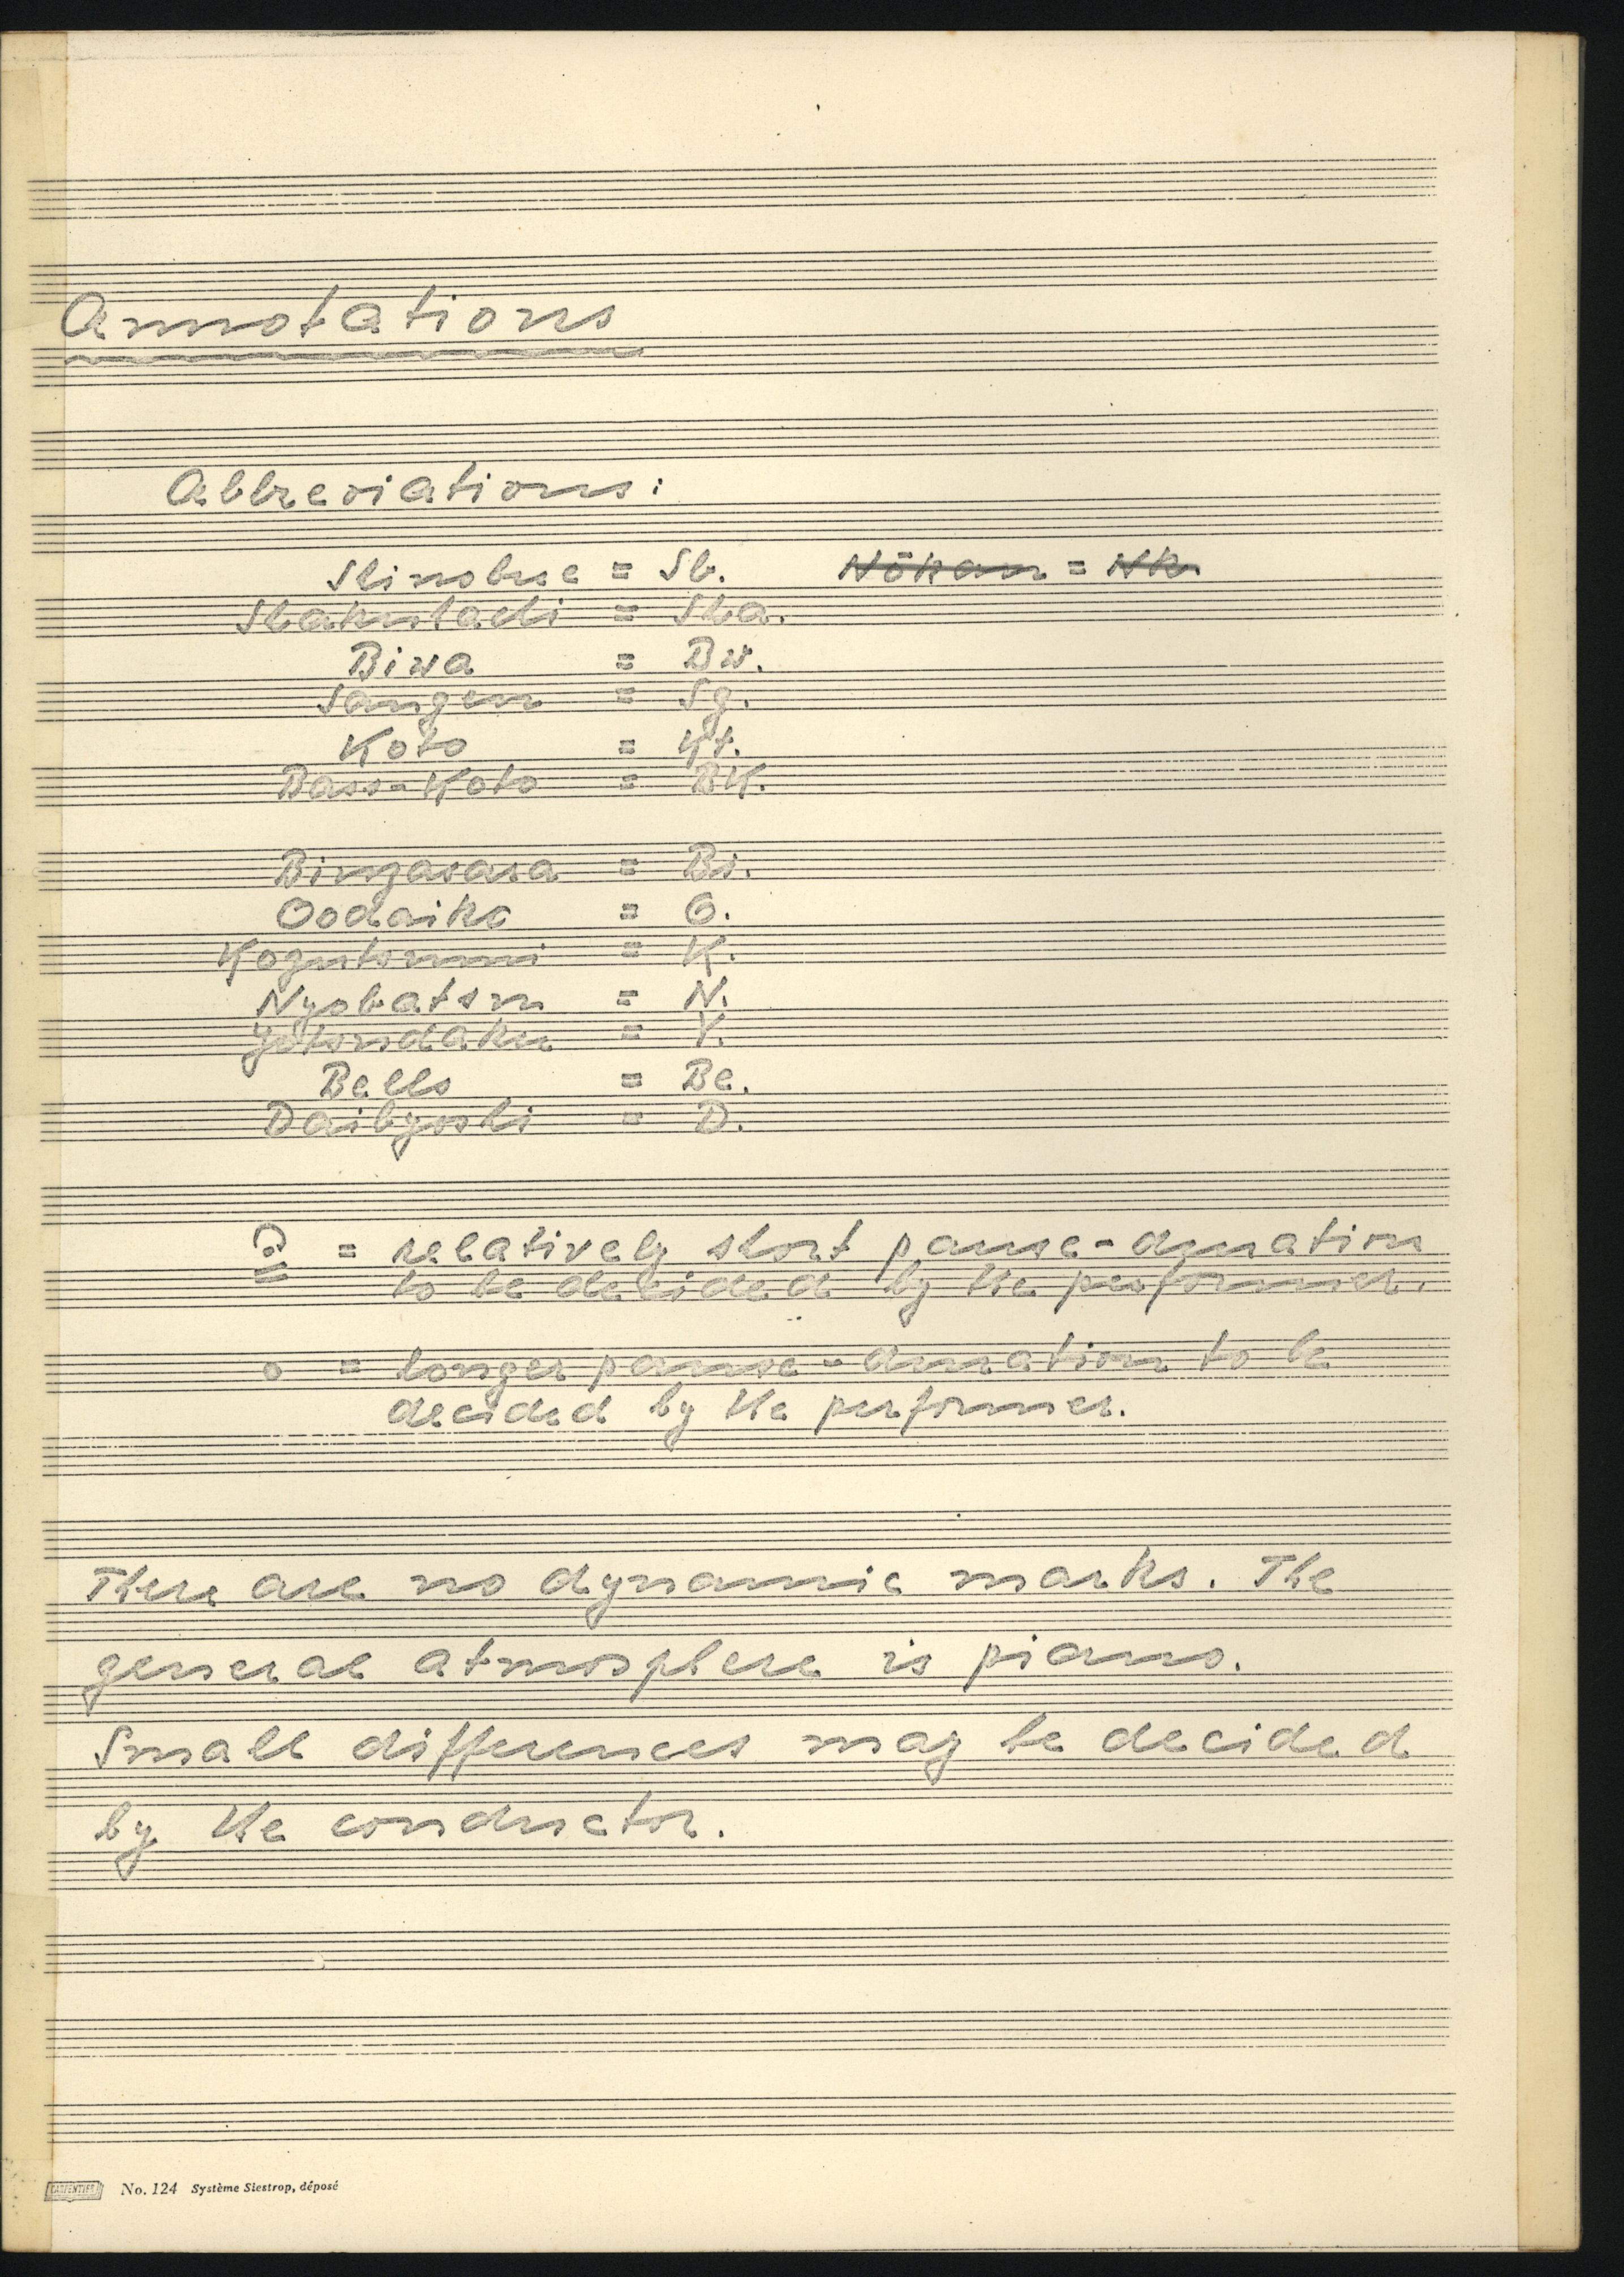 Annotations
Abbreviations:
Shinobue = Sb. Nōkan = Nk.
Shakuhachi = Sha.
Biwa = Bw.
Sangen = Sg.
Koto = Kt.
Bass-Koto = BK.
Binzasara = Bi.
Oodaiko = O.
Kozutsumi = K.
Nyobatsu = N.
= Y.
Bells = Be.
Daibyoshi = D.
= relatively short pause-duration
to be decided by the performer.
o = longer pause-duration to be
decided by the performer.
There are no dynamic marks. The
general atmosphere is piano.
Small differences may be decided
by the conductor.
CARPENTIER No. 124 Système Siestrop, déposé